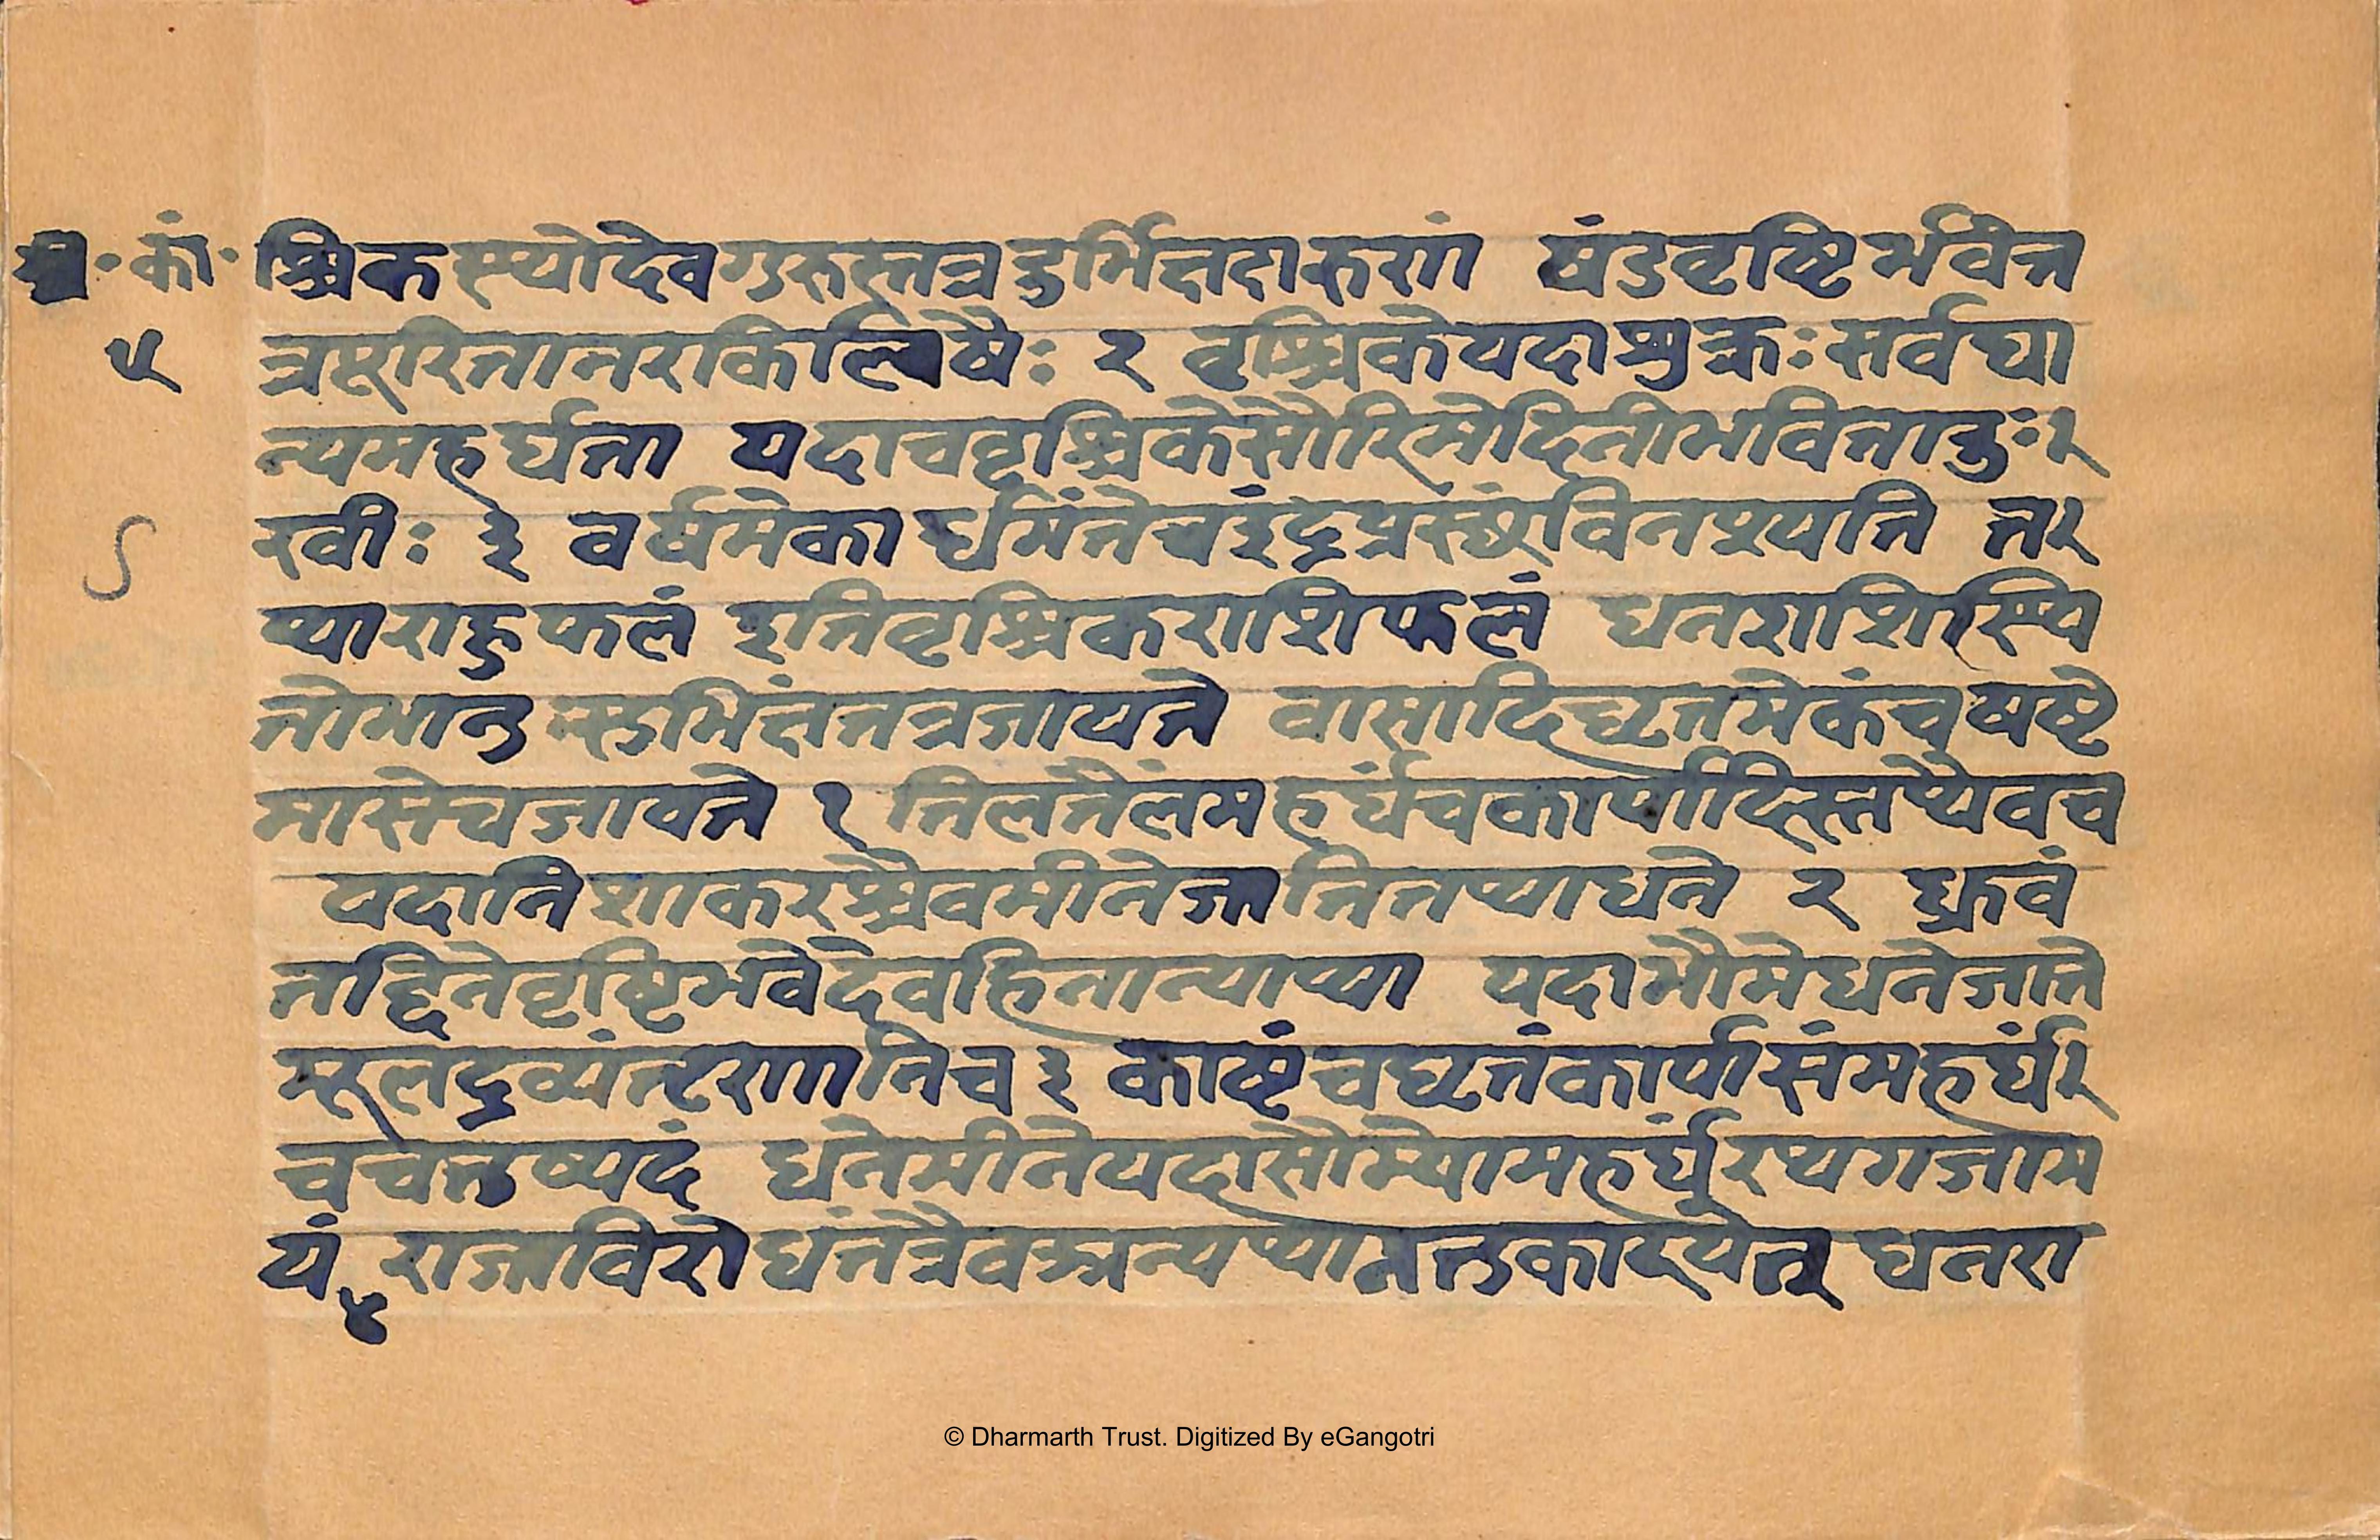 कां॰ श्चिकस्योदेवगुरुस्तत्रदुर्भिक्षदारुणं षंडवृष्टिर्भवेत्त
५ त्रष्टारितानराकिल्विषैः २ वृश्चिकेयदाशुक्रः सर्वधा
न्यमहर्घता यदाचवृश्चिकेसौरिमेदिनीभवितादुः।
खीः ३ वर्षमेकार्धमितेचइंद्रप्रस्थंविनश्यति त।
थाराहुफलं इतिवृश्चिकराशिफलं धनराशिस्थि
तोभानुस्सुभिक्षंतत्रजायते वासादिघृतमेकंचषष्टे
मासेचजायते १ तिलतैलंमहर्घंचकार्पादिस्तथैवच
यदातिशाकरश्चैवमीनेजातितथाधने २ ध्रुवं
तद्दिनेवृष्टिर्भवेदेवहितान्याथा यदाभौमेधनेजाते
मूलद्रव्यंतृणानिच ३ काष्टंचघृतंकार्पासंमहर्घं।
चचतुष्पदं धनेमीनेयदासौम्योमहर्घुंरथगजाम
यं ४ राजाविरोधंतत्रैवअन्यथानतुकारयेत् धनरा
© Dharmarth Trust. Digitized By eGangotri